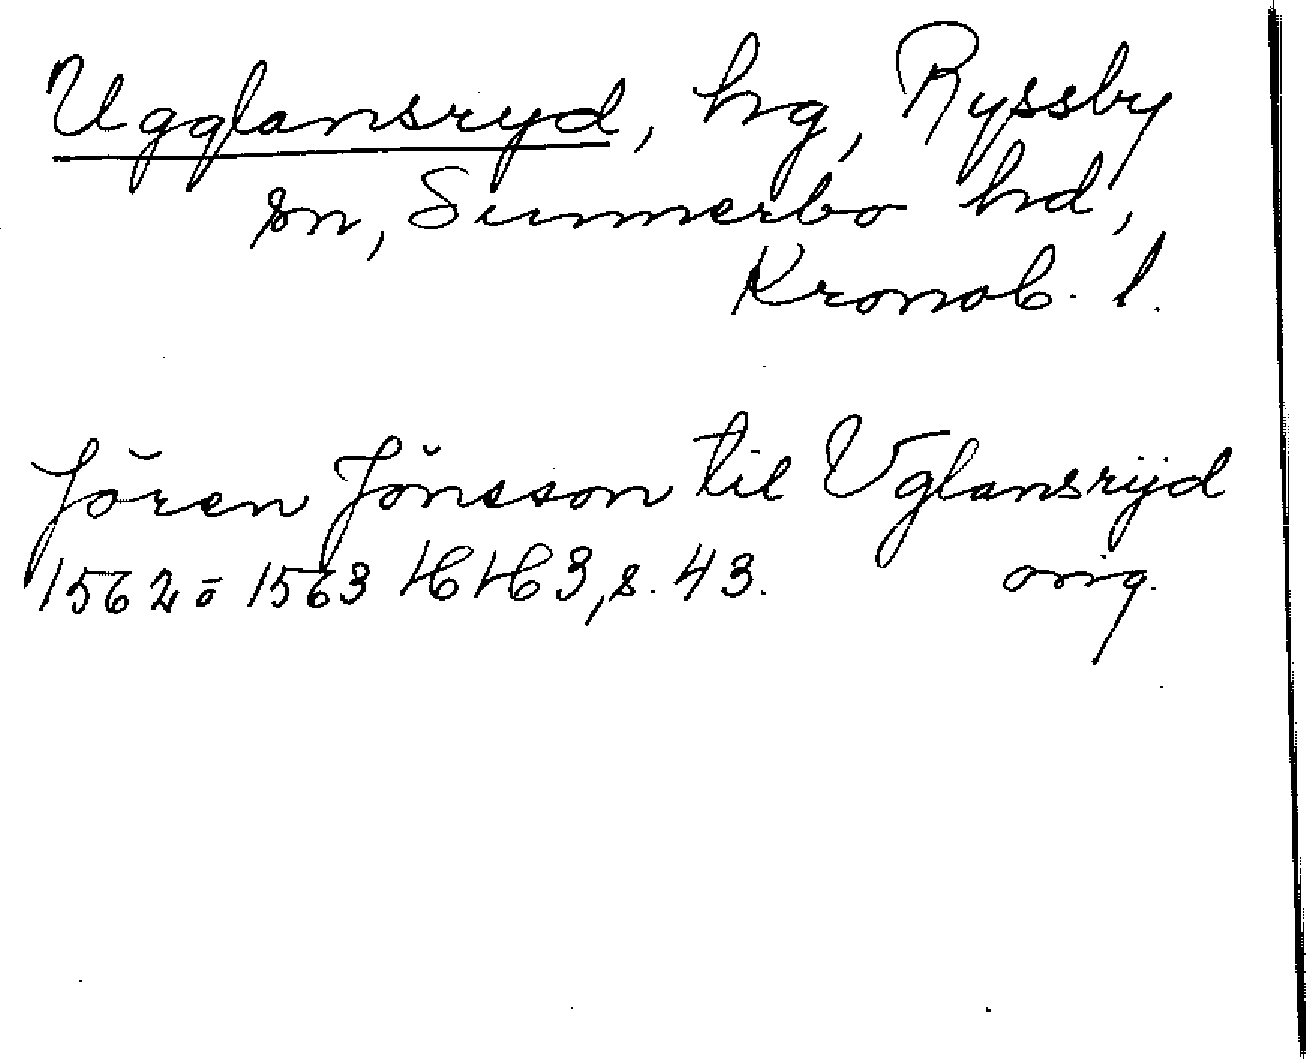 Ugglansryd, hg, Ryssby
sn, Sunnerbo hd,
Kronob. l.
Jören Jönsson til Vglansrÿd
1562 o 1563 HH 3, s. 43. orig.